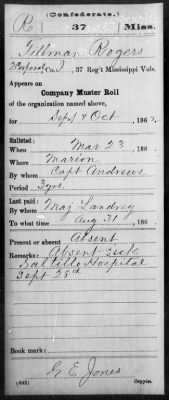 (Confederate.)
R 37 Miss.
Tillman Rogers
Corporal, Co. , 37 Reg't Mississippi Vols.
Appears on
Company Muster Roll
of the organization named above,
for Sept & Oct , 186 .
Enlisted:
When Mar 23 , 186
Where Marion
By whom Capt Andrews
Period 3 yrs
Last paid:
By whom Maj Landrey
To what time Aug 31 , 186
Present or absent Absent
Remarks: Absent sick
Saltillo Hospital
Sept 28th
Book mark:
G. E. Jones
(642) Copyist.